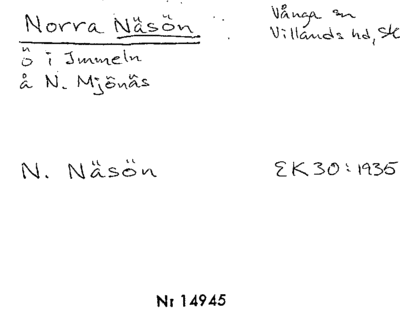 Norra Näsön
Vånga sn
Villands hd, Sk
ö i Immeln
å N. Mjönäs
N. Näsön
EK 30:1935
Nr 14945